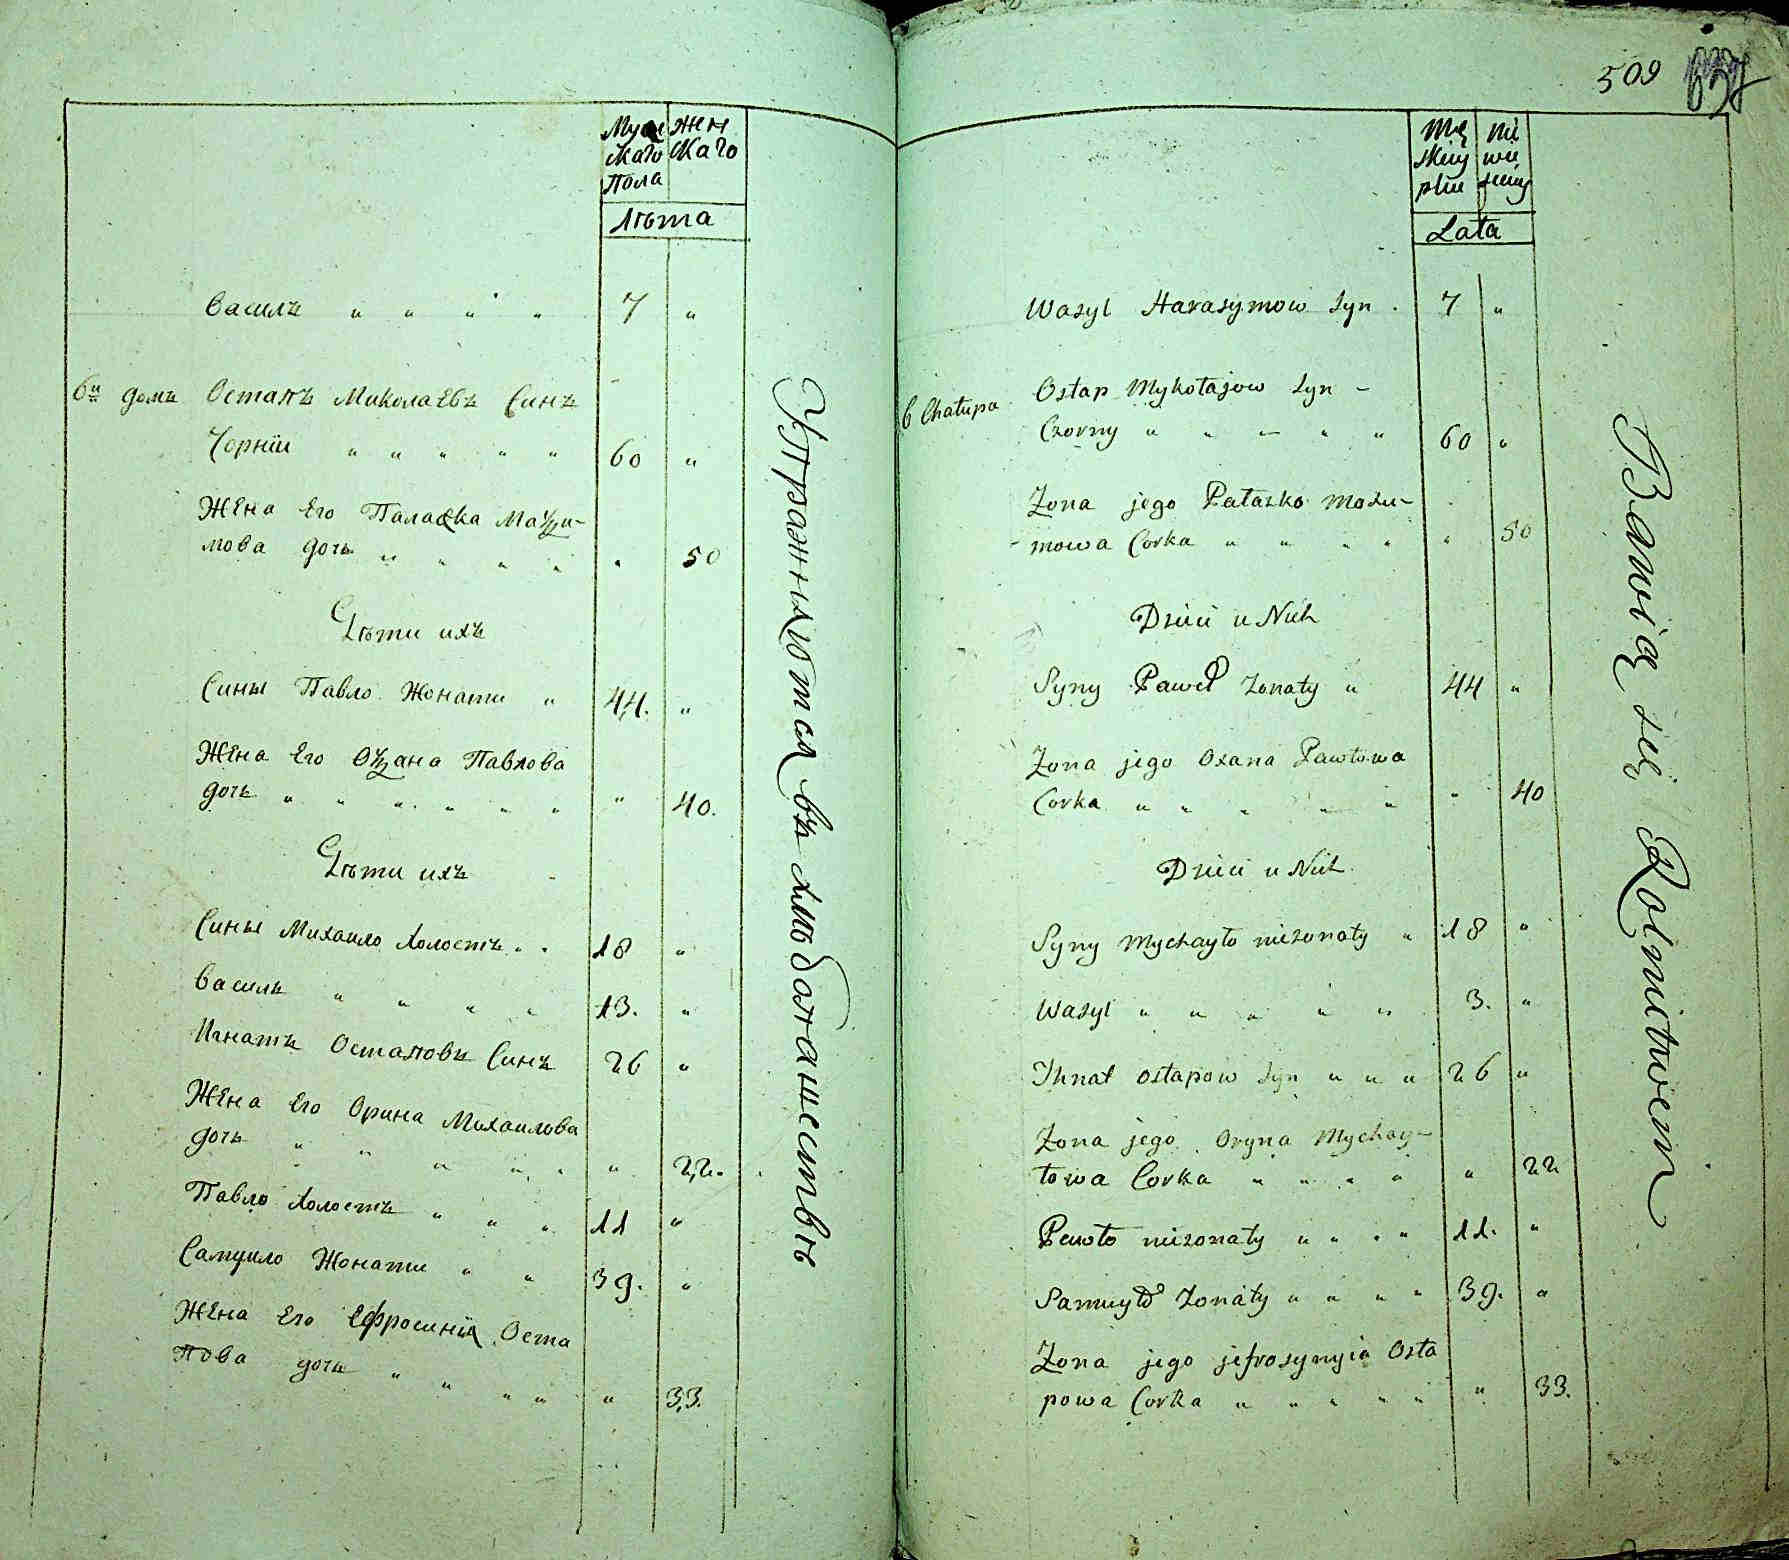 Муж
скаго
пола
Жен
скаго
Лѣта
Василь " " " " 7 "
6й домъ Остапъ Миколаевъ Синъ
Чорнiи " " " " " 60 "
Жена Его Палажка Макси-
мова дочь " " " " " 50
Дѣти ихъ
Сины Павло Жонати " 44. "
Жена Его Оксана Павлова
дочь " " " " " " " 40.
Дѣти ихъ
Сины Михаило Холостъ " " 18 "
Василь " " " " 13. "
Игнатъ Остаповъ Синъ 26 "
Жена Его Орина Михаилова
дочь " " " " " " 22.
Павло Холостъ " " " 11 "
Самуило Жонати " " 39. "
Жена Его Ефросинiя Оста
пова дочь " " " " " 33.
Упражняются въ хлѣбопашествѣ
509
Mę
skiey
płci
Ni
wie
sciey
Lata
Wasyl Harasymow Syn . 7 "
6 Chałupa Ostap Mykołajow Syn -
Czorny " " " " " 60 "
Zona jego Pałazka Maxi-
mowa Corka " " " " " 50
Dzieci u Nich
Syny Paweł zonaty " 44 "
Zona jego Oxana Pawłowa
Corka " " " " " " 40
Dzieci u Nich
Syny Mychayło niezonaty " 18 "
Wasyl " " " " " 3. "
Ihnat Ostapow Syn " " " 26 "
Zona jego Oryna Mychay-
łowa Corka " " " " " 22
Pawło niezonaty " " " " 11. "
Samuyło zonaty " " " " 39. "
Zona jego jefrosynyia Osta
powa Corka " " " " " " 33.
Bawią się Rolnictwem